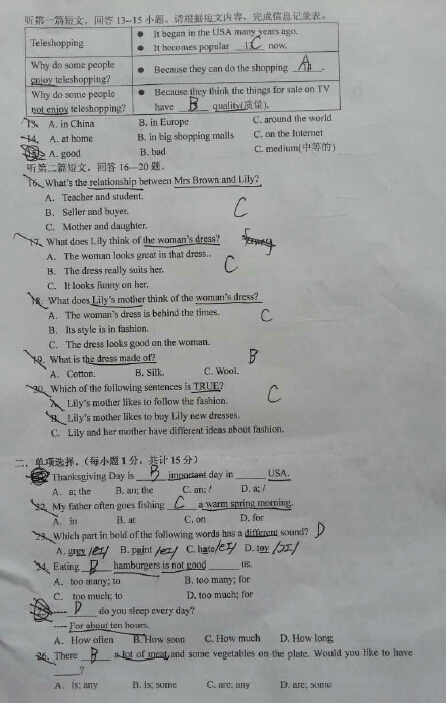 听第一篇短文,回答13-15小题。请根据短文内容,完成信息记录表。
Teleshopping
● It began in the USA many years ago.
● It becomes popular 13 C now.
Why do some people enjoy teleshopping?
● Because they can do the shopping A.
Why do some people not enjoy teleshopping?
● Because they think the things for sale on TV have B quality(质量).
13. A. in China B. in Europe C. around the world
14. A. at home B. in big shopping malls C. on the Internet
A. good B. bad C. medium(中等的)
听第二篇短文,回答16—20题。
16. What's the relationship between Mrs Brown and Lily?
A. Teacher and student.
B. Seller and buyer. C
C. Mother and daughter.
17. What does Lily think of the woman's dress?
A. The woman looks great in that dress..
B. The dress really suits her. C
C. It looks funny on her.
18. What does Lily's mother think of the woman's dress?
A. The woman's dress is behind the times. C
B. Its style is in fashion.
C. The dress looks good on the woman.
19. What is the dress made of? B
A. Cotton. B. Silk. C. Wool.
20. Which of the following sentences is TRUE?
A. Lily's mother likes to follow the fashion. C
B. Lily's mother likes to buy Lily new dresses.
C. Lily and her mother have different ideas about fashion.
二、单项选择。(每小题1分,共计15分)
Thanksgiving Day is B important day in ____ USA.
A. a; the B. an; the C. an; / D. a; /
22. My father often goes fishing C a warm spring morning.
A. in B. at C. on D. for
23. Which part in bold of the following words has a different sound? D
A. grey /eɪ/ B. paint /eɪ/ C. hate /eɪ/ D. toy /ɔɪ/
24. Eating D hamburgers is not good ____ us.
A. too many; to B. too many; for
C. too much; to D. too much; for
25. ---- D do you sleep every day?
---- For about ten hours.
A. How often B. How soon C. How much D. How long
26. There B a lot of meat and some vegetables on the plate. Would you like to have
____?
A. is; any B. is; some C. are; any D. are; some